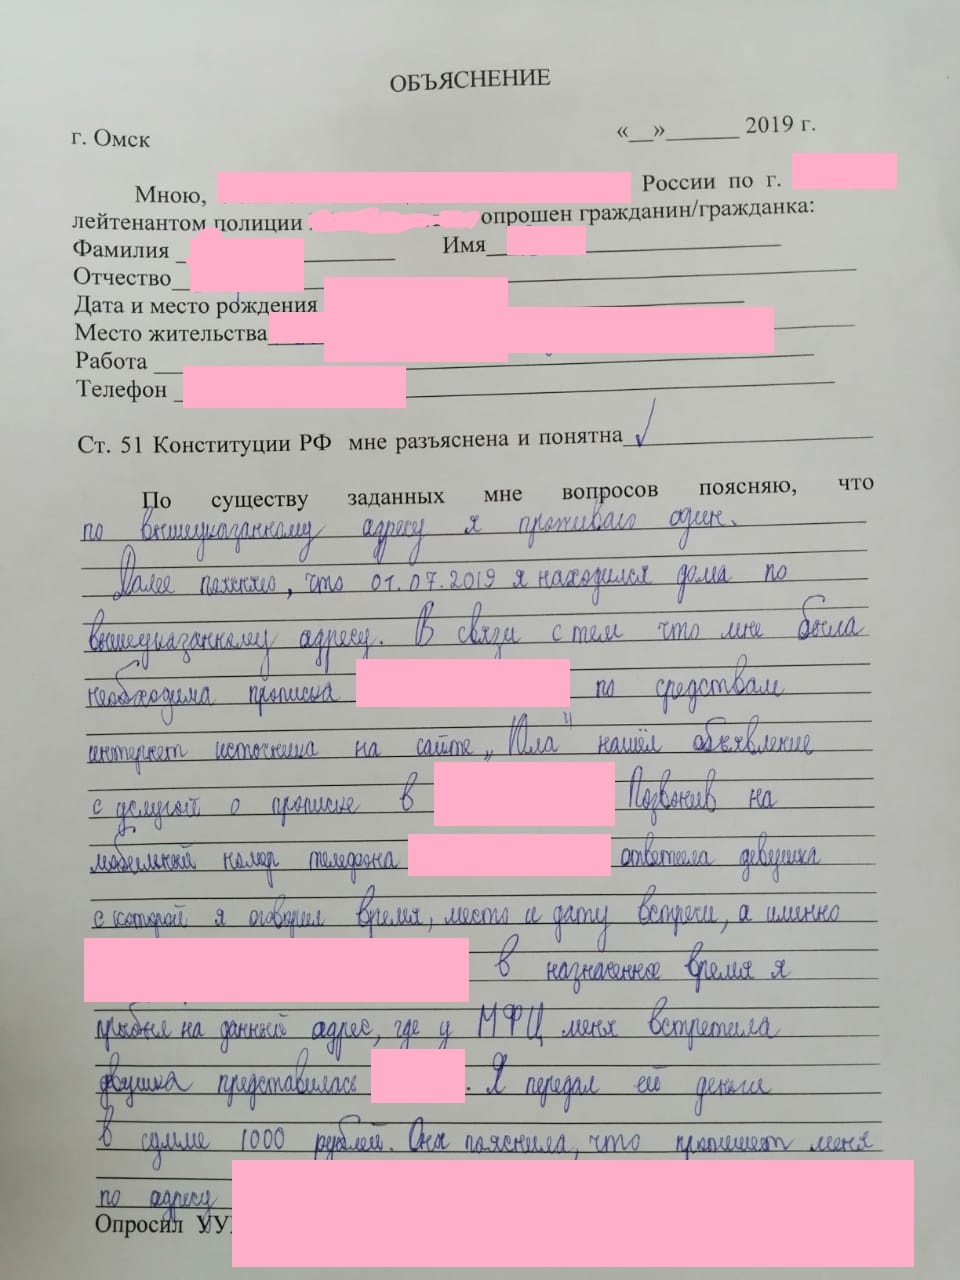 ОБЪЯСНЕНИЕ
г. Омск «__»______ 2019 г.
Мною, России по г.
лейтенантом полиции опрошен гражданин/гражданка:
Фамилия Имя
Отчество
Дата и место рождения
Место жительства
Работа
Телефон
Ст. 51 Конституции РФ мне разъяснена и понятна
По существу заданных мне вопросов поясняю, что
по вышеуказанному адресу я проживаю один.
Далее поясняю, что 01.07.2019 я находился дома по
вышеуказанному адресу. В связи с тем что мне была
необходима прописка по средствам
интернет источника на сайте „Юла" нашёл объявление
с услугой о прописке в Позвонив на
мобильный номер телефона ответила девушка
с которой я оговорил время, место и дату встречи, а именно
в назначенное время я
прибыл на данный адрес, где у МФЦ меня встретила
девушка представилась . Я передал ей деньги
в сумме 1000 рублей. Она пояснила, что пропишет меня
по адресу
Опросил УУ